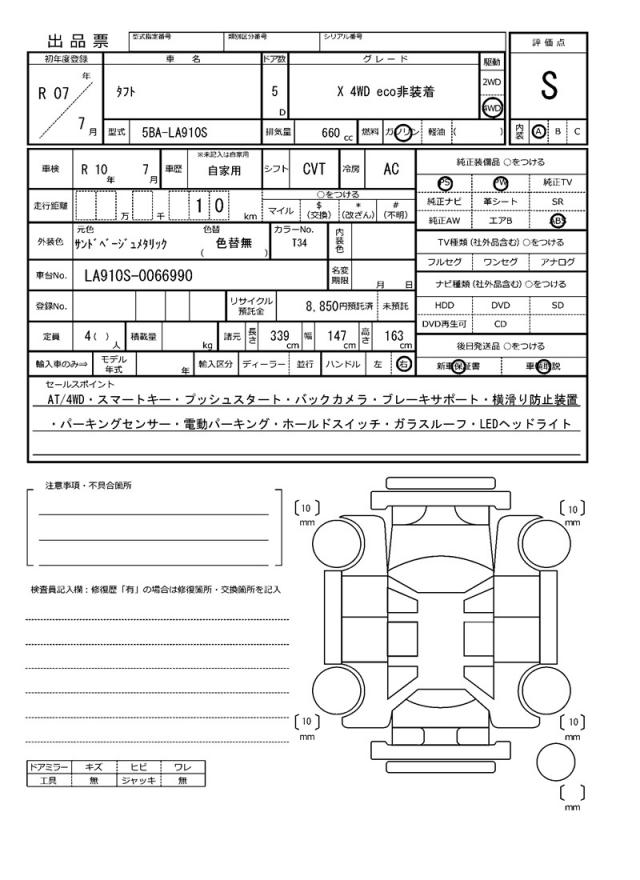 出品票
型式指定番号 類別区分番号 シリアル番号
評価点
S
内装 A B C
初年度登録 車名 ドア数 グレード 駆動
R 07 年 7 月
タフト 5 D X 4WD eco非装着 2WD 4WD
型式 5BA-LA910S 排気量 660 cc 燃料 ガソリン 軽油 ( )
車検 R 10 年 7 月 車歴 ※未記入は自家用 自家用 シフト CVT 冷房 AC
走行距離 万 千 1 0 km ○をつける マイル $ (交換) * (改ざん) # (不明)
外装色 元色 サンドベージュメタリック 色替 ( 色替無 ) カラーNo. T34 内装色
車台No. LA910S-0066990 名変期限 月 日
登録No. リサイクル預託金 8,850円預託済 未預託
定員 4( ) 人 積載量 kg 諸元 長さ 339 cm 幅 147 cm 高さ 163 cm
輸入車のみ⇒ モデル年式 年 輸入区分 ディーラー 並行 ハンドル 左 右
純正装備品 ○をつける
PS PW 純正TV
純正ナビ 革シート SR
純正AW エアB ABS
TV種類 (社外品含む) ○をつける
フルセグ ワンセグ アナログ
ナビ種類 (社外品含む) ○をつける
HDD DVD SD
DVD再生可 CD
後日発送品 ○をつける
新車保証書 車輌取説
セールスポイント
AT/4WD・スマートキー・プッシュスタート・バックカメラ・ブレーキサポート・横滑り防止装置
・パーキングセンサー・電動パーキング・ホールドスイッチ・ガラスルーフ・LEDヘッドライト
注意事項・不具合箇所
検査員記入欄：修復歴「有」の場合は修復箇所・交換箇所を記入
〔10〕 mm
〔10〕 mm
〔10〕 mm
〔10〕 mm
〔 〕 mm
ドアミラー キズ ヒビ ワレ
工具 無 ジャッキ 無